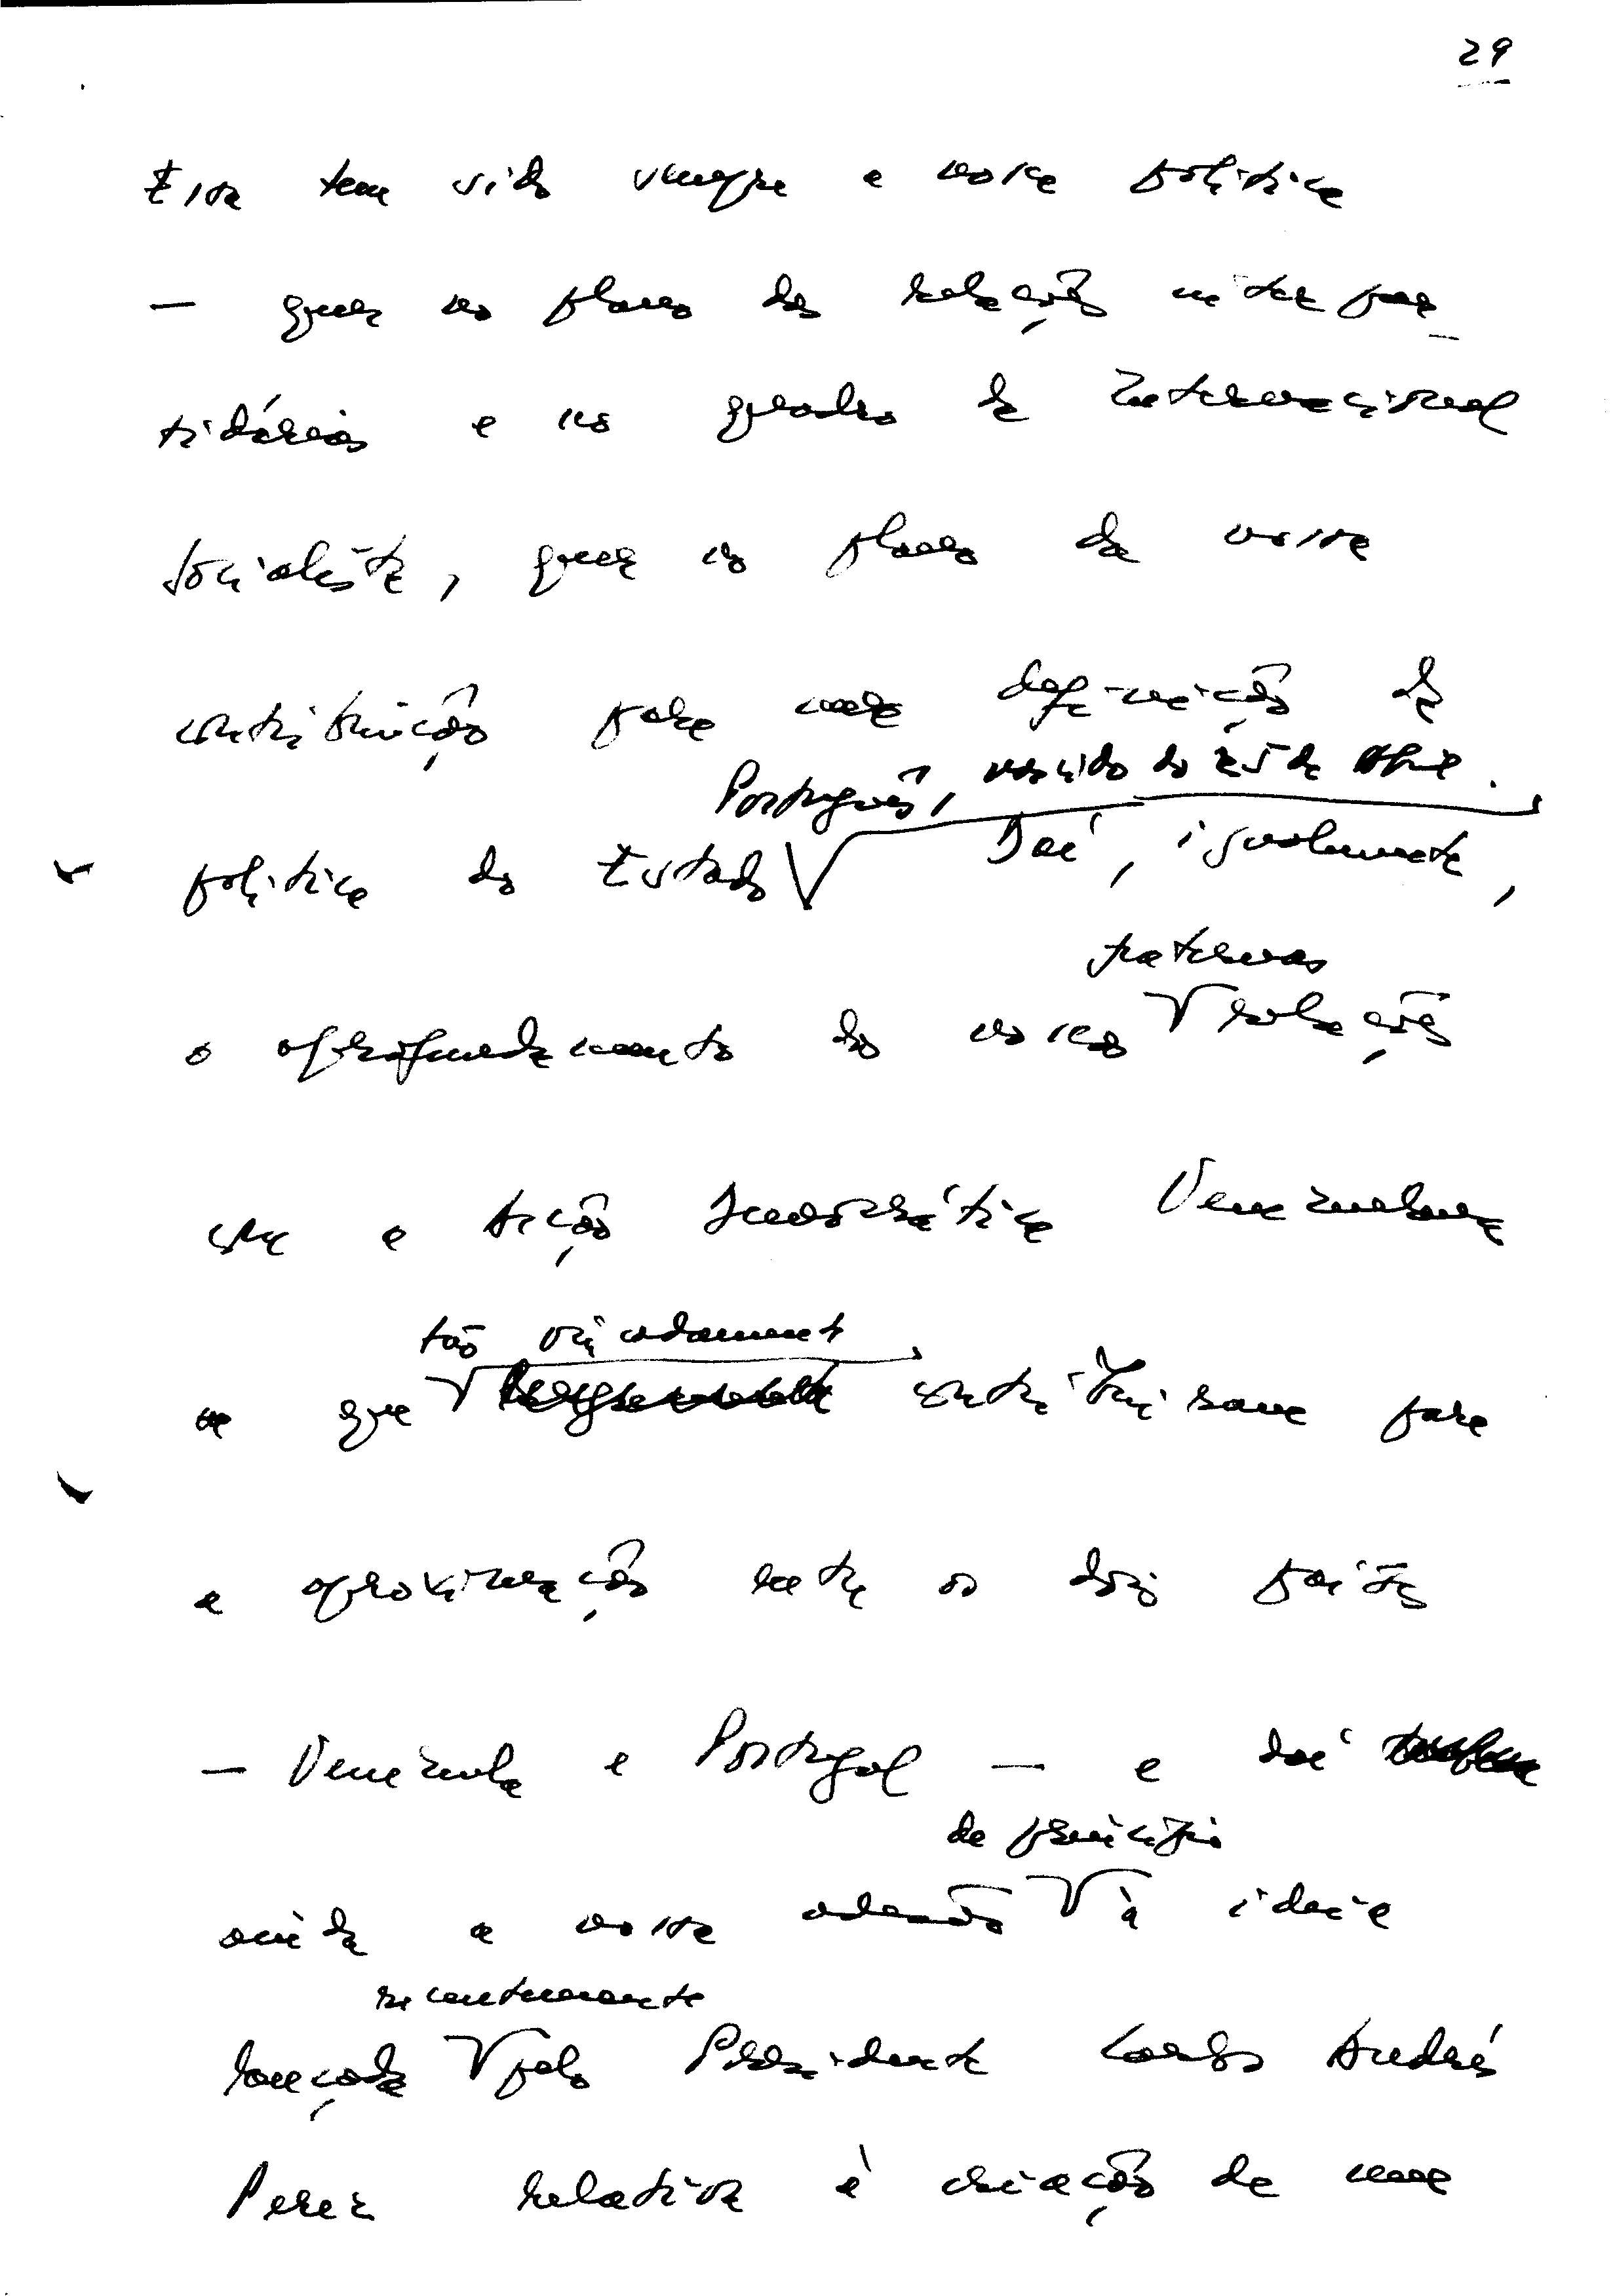 29
Essa tem sido sempre a nossa política
— quer no plano das relações interpar-
tidárias e no quadro da Internacional
Socialista, quer no plano da nossa
contribuição para uma definição da
Português, nascido do 25 de Abril.
política do Estado Daí, igualmente,
fraternas
o aprofundamento das nossas relações
com a Acção Democrática Venezuelana
tão vincadamente
e que contribuiram para
a aproximação entre os dois países
— Venezuela e Portugal — e daí
de princípio
ainda a nossa adesão à ideia
recentemente
lançada pelo Presidente Carlos Andrés
Perez relativa à criação de uma